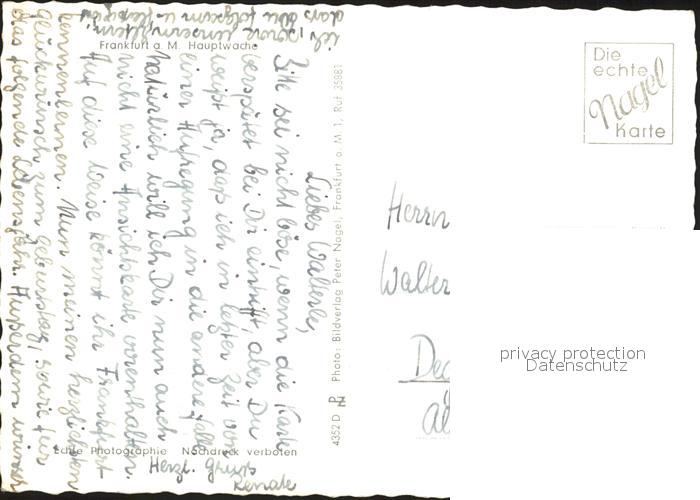 Frankfurt a. M. Hauptwache
Liebes Walterle,
Bitte sei nicht böse, wenn die Karte
verspätet bei Dir eintrifft, aber Du
weißt ja, daß ich in letzter Zeit von
einer Aufregung in die andere falle
Natürlich will ich Dir nun auch
nicht eine Ansichtskarte vorenthalten.
Auf diese Weise könnt ihr Frankfurt
kennenlernen. Nun meinen herzlichsten
Glückwunsch zum Geburtstag, sowie für
das folgende Lebensjahr. Außerdem wünsch
ich,
dass Du folgsam u. fleißig
Herzl.
Renate
Echte Photographie Nachdruck verboten
4352 D Photo: Bildverlag Peter Nagel, Frankfurt a. M. 1, Ruf 35881
Die
echte
Nagel
Karte
Herrn
Walter
privacy protection
Datenschutz